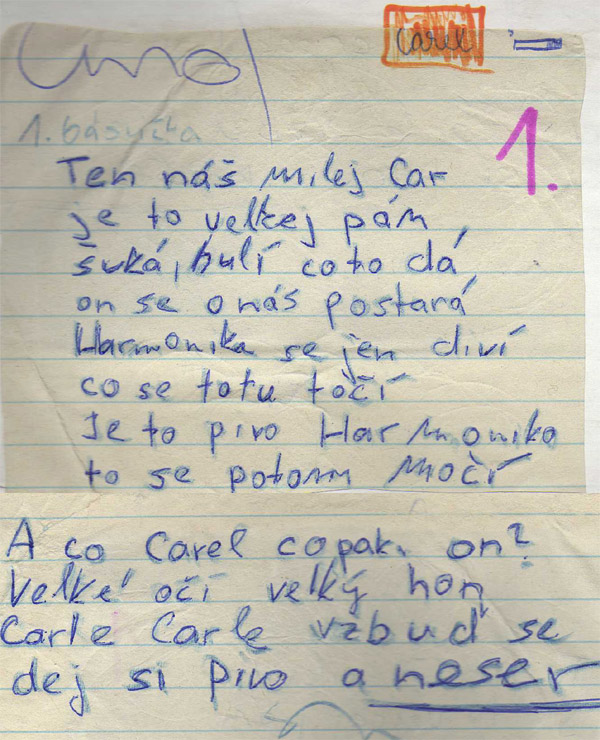 Carel
1.
1. básnička
Ten náš milej Car
je to velkej pán,
šuká, bulí co to dá,
on se o nás postará
Harmonika se jen diví
co se totu točí
Je to pivo Harmoniko
to se potom močí
A co Carel copak on?
Velké očí velký hon
Carle Carle vzbuď se
dej si pivo a neser